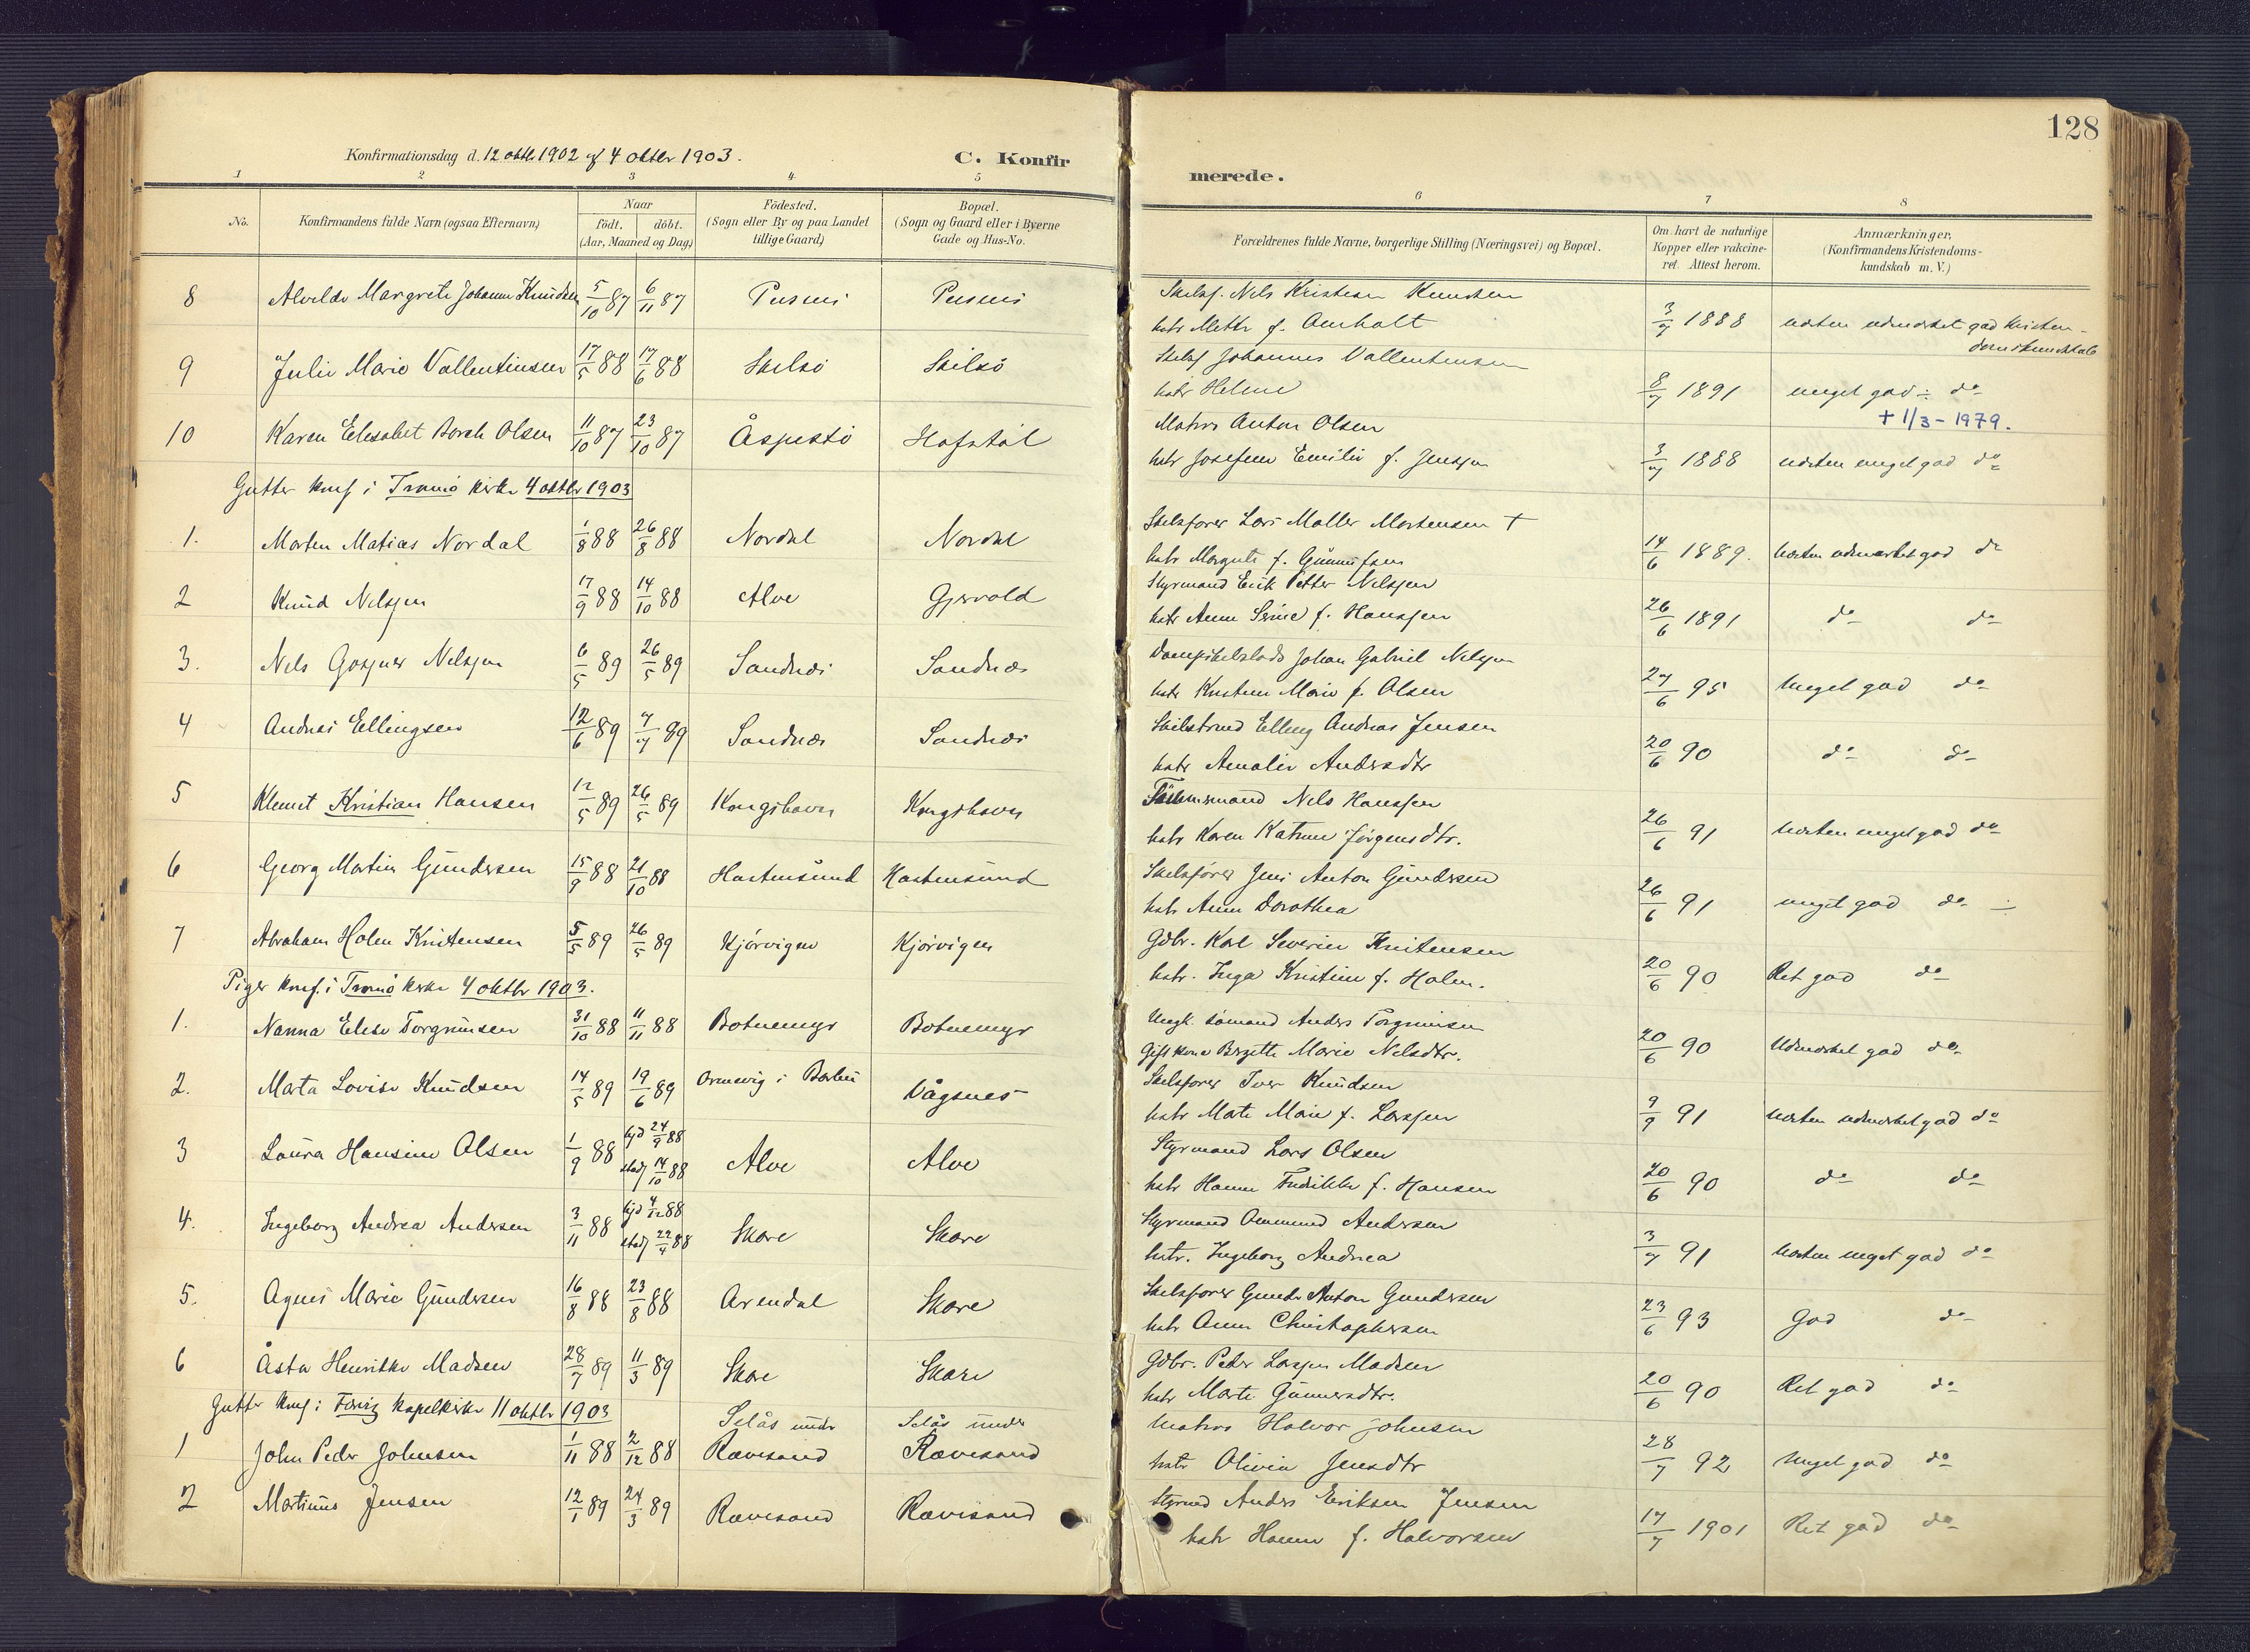 128
Konfirmationsdag d. 12 oktbr 1902 og 4 oktbr 1903.
C. Konfirmerede.
1 2 3 4 5 6 7 8
No.
Konfirmandens fulde Navn (ogsaa Efternavn)
Naar
født. døbt.
(Aar, Maaned og Dag)
Fødested.
(Sogn eller By og paa Landet
tillige Gaard)
Bopæl.
(Sogn og Gaard eller i Byerne
Gade og Hus-No.
Forældrenes fulde Navne, borgerlige Stilling (Næringsvei) og Bopæl.
Om havt de naturlige
Kopper eller vakcine-
ret. Attest herom.
Anmærkninger,
(Konfirmandens Kristendoms-
kundskab m. V.)
8 Alvilde Margrete Johanne Knudsen 5/10 87 6/11 87 Pusnes Pusnes Skibsf. Nils Kristian Knudsen
hstr Mette f. Omholt 3/7 1888 næsten udmærket god kristen-
domskundskab
9 Julie Marie Vallentinsen 17/5 88 17/6 88 Skilsö Skilsö Skibsf Johannes Vallentensen
hstr Helene 8/7 1891 meget god do
+ 1/3 - 1979.
10 Karen Elisabet Olsen 11/10 87 23/10 87 Åspestö Hofstöl Matros Anton Olsen
hstr Josefine Emilie f. Jenssen 3/7 1888 næsten meget god do
Gutter konf i Tromö kirke 4 oktbr 1903
1. Morten Matias Nordal 1/8 88 26/8 88 Nordal Nordal Skibsfører Lars Møller Mortensen +
hstr Margrete f. 14/6 1889. næsten udmærket god do
2 Knud Nilssen 17/9 88 14/10 88 Alve Gjervold Styrmand Erik Petter Nilssen
hstr Anne Serine f. Hanssen 26/6 1891 do do
3. Nils Nilssen 6/5 89 26/5 89 Sandnæs Sandnæs Johan Gabriel Nilssen
hstr Kristine Marie f. Olsen 27/6 95 Meget god do
4 Andreas Ellingsen 12/6 89 7/7 89 Sandnæs Sandnæs Elling Andreas Jensen
hstr Amalie Andersdtr 20/6 90 do do
5 Klemet Kristian Hansen 12/5 89 26/5 89 Kongshavn Kongshavn Tømmermand Nils Hanssen
hstr Karen Katrine Jörgensdtr. 26/6 91 næsten meget god do
6 Georg Martin Gundersen 15/9 88 21/10 88 Hastensund Hastensund Skibsfører Jens Anton Gundersen
hstr Anne Dorothea 26/6 91 meget god do
7 Abraham Holm Kristensen 5/5 89 26/5 89 Kjörvigen Kjörvigen Gdbr. Karl Severin Kristensen
hstr. Inga Kristine f. Holm. 20/6 90 Ret god do
Piger konf. i Tromö kirke 4 oktbr 1903.
1. Nanna Elise Torgrimsen 31/10 88 11/11 88 Botnemyr Botnemyr Ungk. sömand Anders Torgrimsen
Gift kone Birgitte Marie Nilsdtr. 20/6 90 Udmærket god do
2. Marta Lovise Knudsen 14/5 89 19/6 89 Ormevig i Barbu Vågsnes Skibsfører Iver Knudsen
hstr Marte Marie f. Larssen 9/9 91 næsten udmærket god do
3 Laura Hansine Olsen 1/9 88 hjd 24/9 88
stadf 14/10 88 Alve Alve Styrmand Lars Olsen
hstr Hanne Fredrikke f. Hansen 20/6 90 do do
4. Ingeborg Andrea Andersen 3/11 88 hjd 4/12 88
stadf 22/4 88 Skare Skare Styrmand Ommund Andersen
hstr. Ingeborg Andrea 3/7 91 næsten meget god do
5. Agnes Marie Gundersen 16/8 88 23/8 88 Arendal Skare Skibsfører Gunder Anton Gundersen
hstr Anne Christophersen 23/6 93 God do
6 Åsta Henrikke Madsen 28/7 89 11/3 89 Skare Skare Gdbr. Peder Larssen Madsen
hstr Marte Gunnersdtr. 20/6 90 Ret god do
Gutter konf i Færvig kapelkirke 11 oktbr 1903
1 John Peder Johnsen 1/11 88 2/12 88 Selås under
Rævesand Selås under
Rævesand Matros Halvor Johnsen
hstr Olivia Jensdtr 28/7 92 Meget god do
2 Martinus Jensen 12/1 89 24/3 89 Rævesand Rævesand Styrmd Anders Eriksen Jensen
hstr Hanne f. Halvorsen 17/7 1901 Ret god do